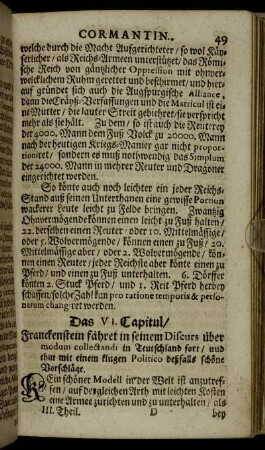 CORMANTIN. 49
welche durch die Macht Aufgerichteter / so wol Käy-
serlicher / als Reichs-Armeen unterstützet / das Römi-
sche Reich von gäntzlicher Oppression mit ohnver-
weicklichem Ruhm gerettet und beschirmet / und hier-
auf gründet sich auch die Augspurgische Alliance,
dann die Cräyß-Verfassungen und die Matricul ist ei-
ne Mutter / die lauter Streit gebiehret / sie verspricht
mehr als sie hält. Zu dem / so ist auch die Reutterey
der 4000. Mann dem Fuß Volck zu 20000. Mann
nach der heutigen Kriegs-Manier gar nicht propor-
tionitet / sondern es muß nothwendig das Simplum
der 24000. Mann in mehrer Reuter und Dragoner
eingerichtet werden.
So könte auch noch leichter ein jeder Reichs-
Stand auß seinen Unterthanen eine gewisse Portion
wackerer Leute leicht zu Felde bringen. Zwantzig
Ohnvermögende können einen leicht zu Fuß halten /
22. derselben einen Reuter / oder 10. Mittelmässige /
oder 5. Wolvermögende / können einen zu Fuß / 20.
Mittelmässige aber / oder 2. Wolvermögende / kön-
nen einen Reuter / jeder Reichste aber könte einen zu
Pferd / und einen zu Fuß unterhalten. 6. Dörffer
könten 2. Stuck Pferd / und 1. Reit Pferd herbey
schaffen / solche Zahl kan pro ratione temporis & perso-
narum changiret werden.
Das VI. Capitul /
Franckenstein fähret in seinem Discurs über
modum collectandi in Teutschland fort / und
thut mit einem klugen Politico deßfalls schöne
Vorschläge.
Ein schöner Modell in der Welt ist anzutref-
fen / auf dergleichen Arth mit leichten Kosten
eine Armee zurichten und zu unterhalten / als
III. Theil. D bey